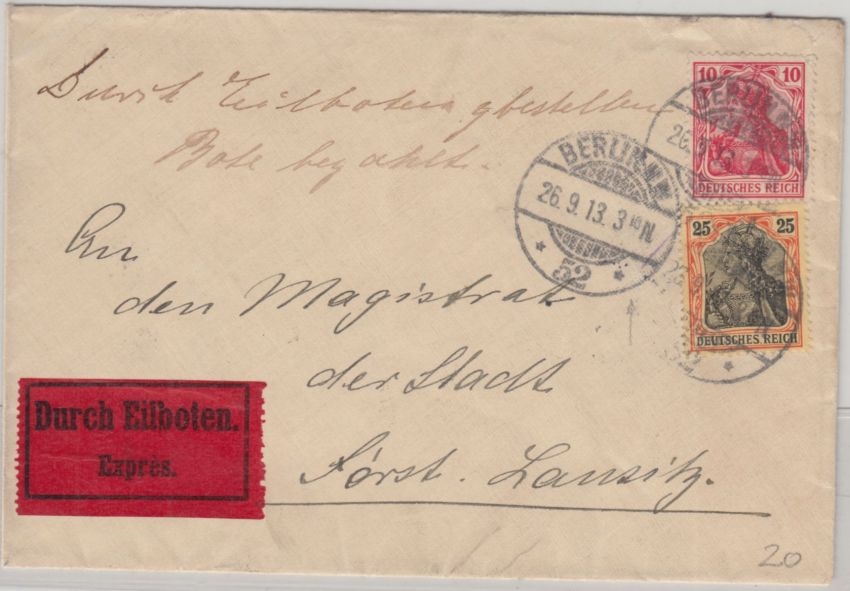 Durch Eilboten zu bestellen
Bote bezahlt.
An
den Magistrat
der Stadt
Forst. Lausitz.
Durch Eilboten.
Exprès.
BERLIN N.W.
26.9.13.3-4N.
* 52 *
10 10
DEUTSCHES REICH
BERLIN
25 25
DEUTSCHES REICH
20